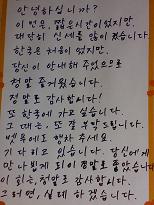 안녕하십니까?
이번은, 짧은시간이었지만,
대단히 신세를 많이 졌습니다.
한국은 처음이었지만,
당신이 안내해 주었으므로
정말 즐거웠습니다.
정말로 감사합니다!
또 한국에 가고 싶습니다.
그 때는, 또 잘 부탁드립니다.
에 꼭 주세요
기다리고 있습니다. 당신에게
만나뵙게 되어 정말로 좋았습니다
정말로 감사합니다.
그러면, 실례 하겠습니다.